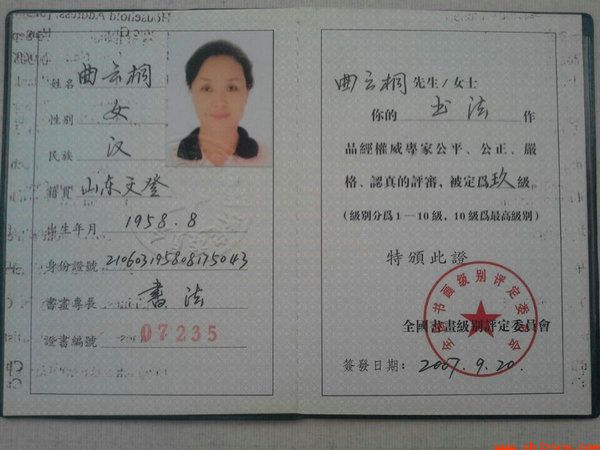 姓名 曲云桐
性别 女
民族 汉
籍貫 山东文登
出生年月 1958.8
身份證號 210603195808175043
書畫專長 書法
證書編號 07235
曲云桐 先生/女士
你的 书法 作
品經權威專家公平、公正、嚴
格、認真的評審，被定爲玖級。
(級别分爲1—10級，10級爲最高級别)
特頒此證
全国书画级别评定委员会
全國書畫級别評定委員會
簽發日期：2007.9.20.